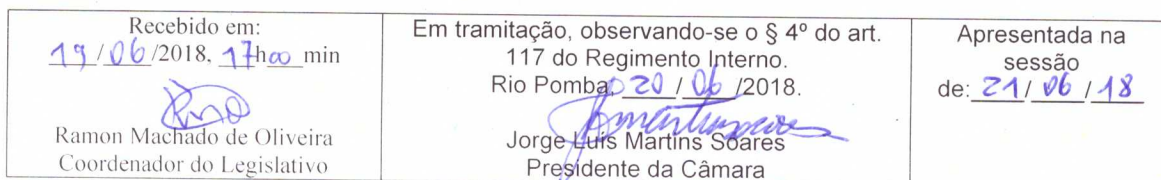 Recebido em:
19/06/2018, 17h00 min
Ramon Machado de Oliveira
Coordenador do Legislativo
Em tramitação, observando-se o § 4º do art.
117 do Regimento Interno.
Rio Pomba, 20/06/2018.
Jorge Luís Martins Soares
Presidente da Câmara
Apresentada na
sessão
de: 21/06/18